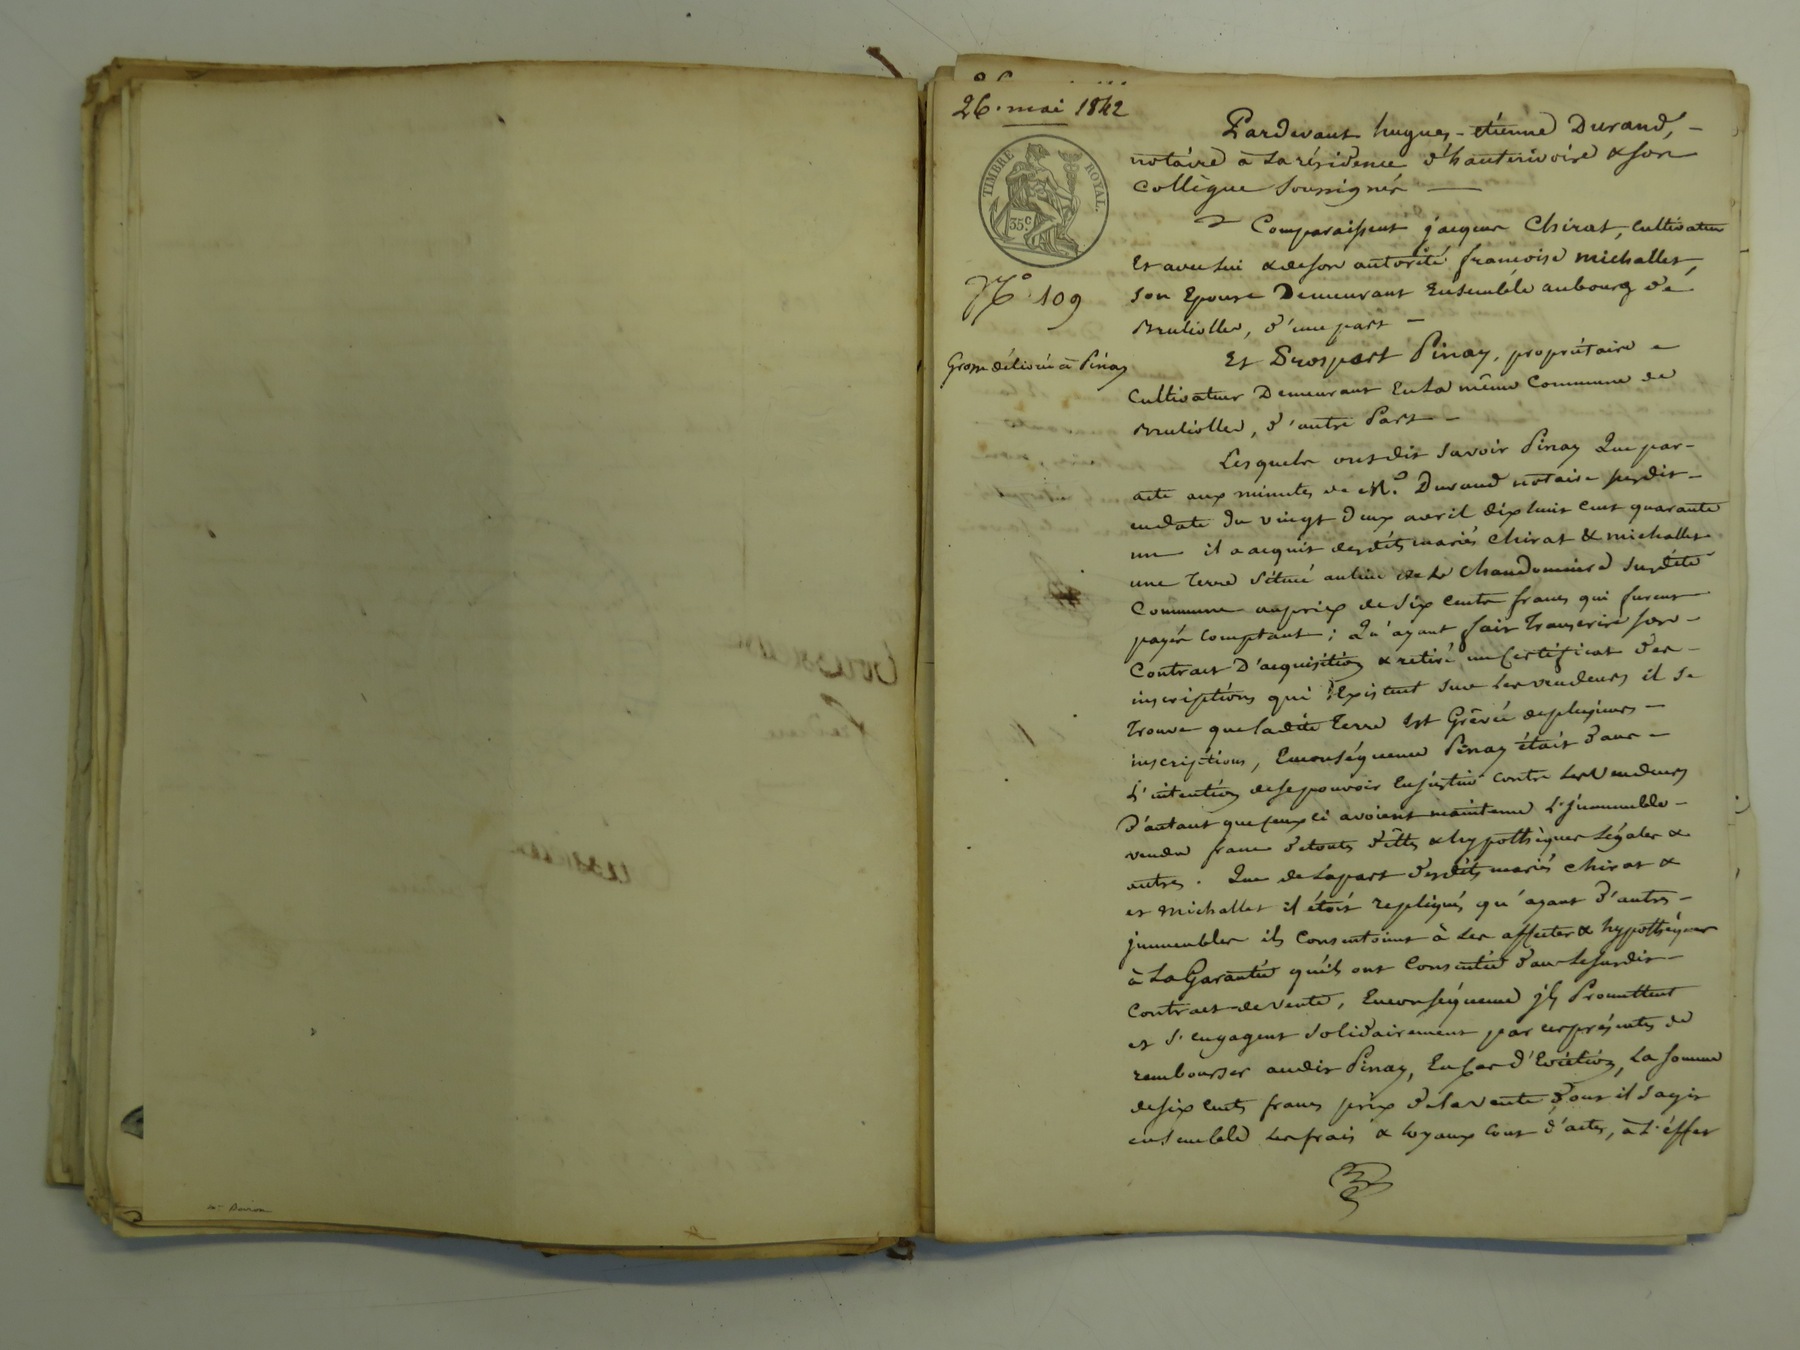 26. mai 1842
TIMBRE ROYAL.
35c.
No 109
Grosse délivrée à Pinay
Pardevant hugues-etienne Durand,
notaire à la résidence d'hauterivoire & son
Collègue soussignés
Comparaissent jacques Chirat, cultivateur
Et avec lui & de son autorité francoise michallet,
son Epouse Demeurant Ensemble au bourg de
Brulliolles, d'une part
Et Prospert Pinay, propriétaire
Cultivateur Demeurant En la même Commune de
Brulliolles, d'autre Part
Lesquels ont dit savoir Pinay Que par
acte aux minutes de Me. Durand notaire susdit
en date du vingt deux avril dix huit cent quarante
un il a acquis desdits mariés Chirat & michallet
une Terre située au lieu de la Chaudonniere susdite
Commune au prix de six cents francs qui furent
payés comptant; Qu'ayant fait Transcrire son
Contract D'acquisition & retiré un Certificat des
inscriptions qui Existent sur les vendeurs il se
trouve que ladite Terre Est Grévée de plusieurs
inscriptions, En conséquence Pinay était dans
L'intention de se pouvoir En justice contre les Vendeurs
d'autant que ceux ci avoient maintenu L'immeuble
vendu franc de touts dêtts & hypothèques Légales &
autres. Que de la part desdits mariés Chirat &
et Michallet il étoit repliqué qu'ayant d'autres
immeubles ils Consentoient à les affecter & hypothéquer
à La Garantie qu'ils ont Consentie dans le susdit
Contract de vente, En conséquence ils Promettent
et s'engagent solidairement par ces présentes de
rembourser audit Pinay, En cas d'Eviction, La somme
de six cents francs prix de la vente dont il s'agit
ensemble les frais & loyaux cout d'actes, à L'éffet